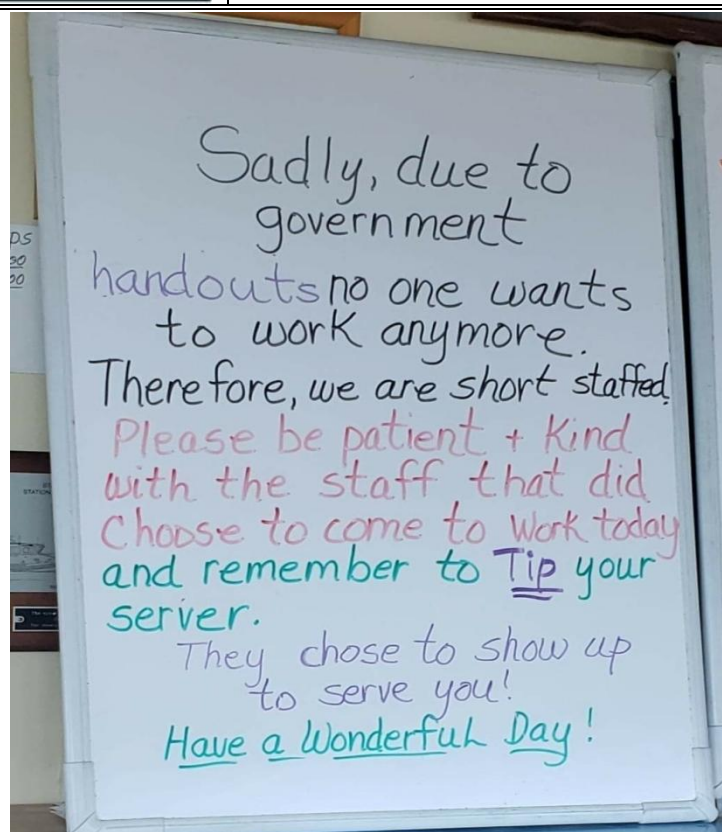 Sadly, due to
government
handouts no one wants
to work anymore.
Therefore, we are short staffed.
Please be patient + Kind
with the staff that did
Choose to come to Work today
and remember to Tip your
server.
They chose to show up
to serve you!
Have a Wonderful Day!
DS